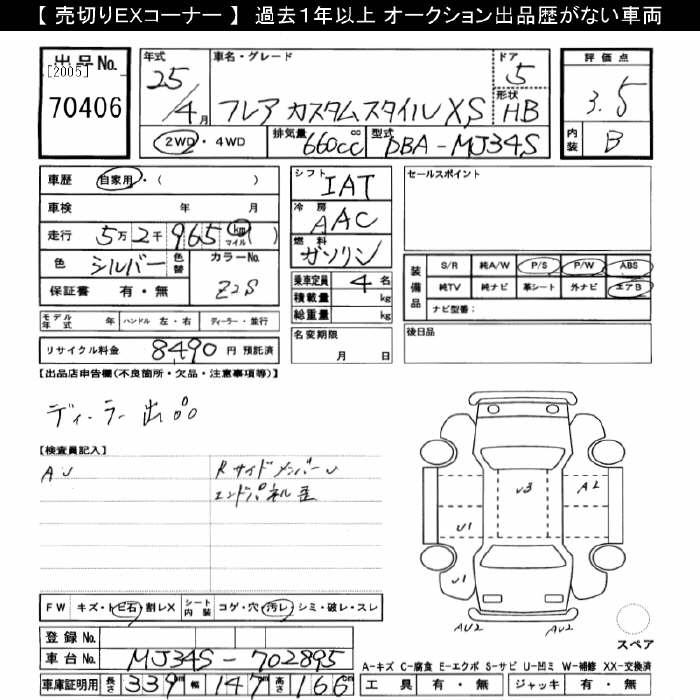 【 売切りEXコーナー 】 過去１年以上 オークション出品歴がない車両
出品No.
[2005]
70406
年式
25/4月
車名・グレード
フレア カスタムスタイル XS
ドア
5
形状
HB
評価点
3.5
内装
B
2WD・4WD
排気量
660cc
cc
型式
DBA-MJ34S
車歴 自家用・( )
車検 年 月
走行 5万2千965 km マイル ( )
色 シルバー 色替
カラーNo.
Z2S
保証書 有・無
シフト
IAT
冷房
AAC
燃料
ガソリン
乗車定員 4 名
積載量 kg
総重量 kg
セールスポイント
装備品
S/R 純A/W P/S P/W ABS
純TV 純ナビ 革シート 外ナビ エアB
ナビ型番：
モデル年式 年 ハンドル 左・右 ディーラー・並行
リサイクル料金 8490 円 預託済
名変期限
月 日
後日品
【出品店申告欄(不良箇所・欠品・注意事項等)】
ディーラー出品
【検査員記入】
AU
RサイドメンバーU
エンドパネル歪
U3
A2
U1
U1
AU2
AU2
スペア
FW キズ・ト ビ石・割レX シート内装 コゲ・穴・汚レ・シミ・破レ・スレ
登録No.
車台No. MJ34S-702895
車庫証明用 長さ 339 幅 147 高さ 166 cm
A-キズ C-腐食 E-エクボ S-サビ U-凹ミ W-補修 XX-交換済
工具 有・無 ジャッキ 有・無